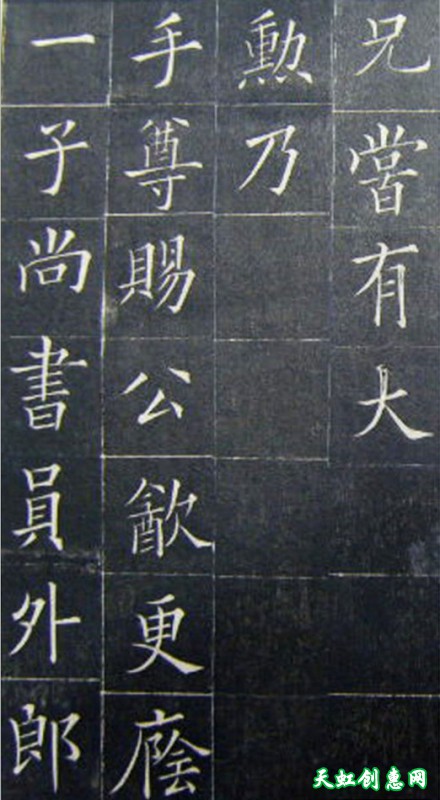 兄嘗有大
勳乃
手尊賜公㱃更廕
一子尚書員外郎
天虹创惠网